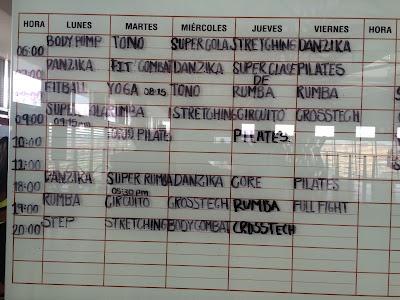 HORA LUNES MARTES MIÉRCOLES JUEVES VIERNES HORA
06:00 BODY PUMP TONO SUPER COLA STRETCHING DANZIKA
DANZIKA FIT COMBAT DANZIKA SUPER CLASE DE PILATES
FITBALL YOGA 08:15 TONO RUMBA RUMBA
09:00 09:15 am RUMBA STRETCHING CIRCUITO CROSSTECH
10:00 PILATES PILATES
11:00
18:00 DANZIKA SUPER RUMBA 05:30 pm DANZIKA CORE PILATES
19:00 RUMBA CIRCUITO CROSSTECH RUMBA FULL FIGHT
20:00 STEP STRETCHING BODY COMBAT CROSSTECH